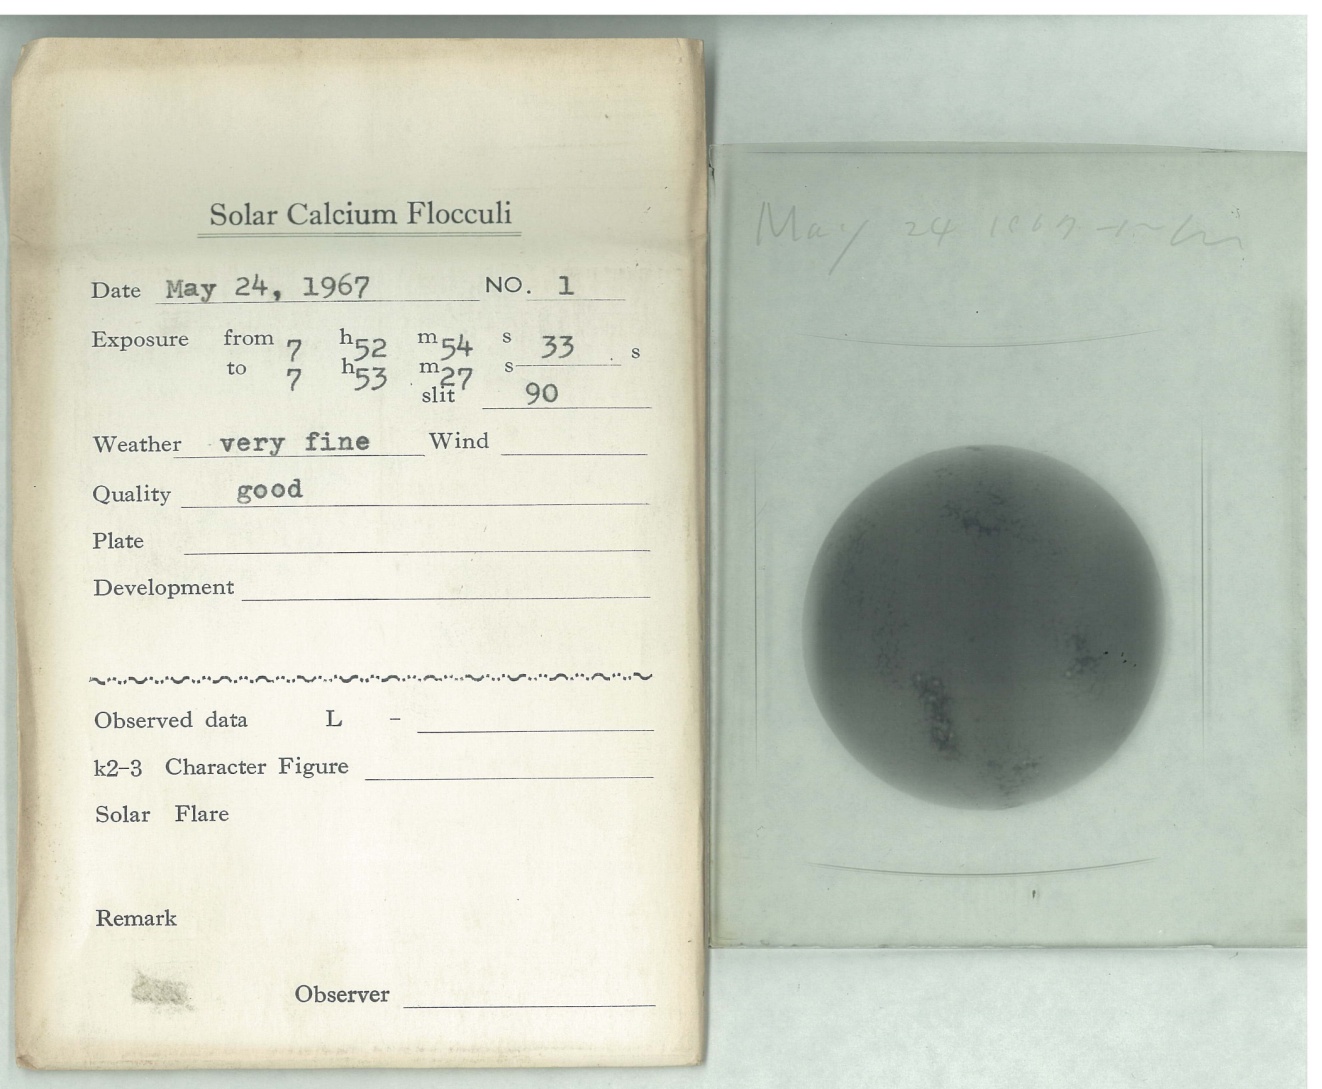 Solar Calcium Flocculi
Date May 24, 1967 NO. 1
Exposure from 7 h 52 m 54 s 33 s
to 7 h 53 m 27 s
slit 90
Weather very fine Wind
Quality good
Plate
Development
Observed data L –
k2–3 Character Figure
Solar Flare
Remark
Observer
May 24 1967